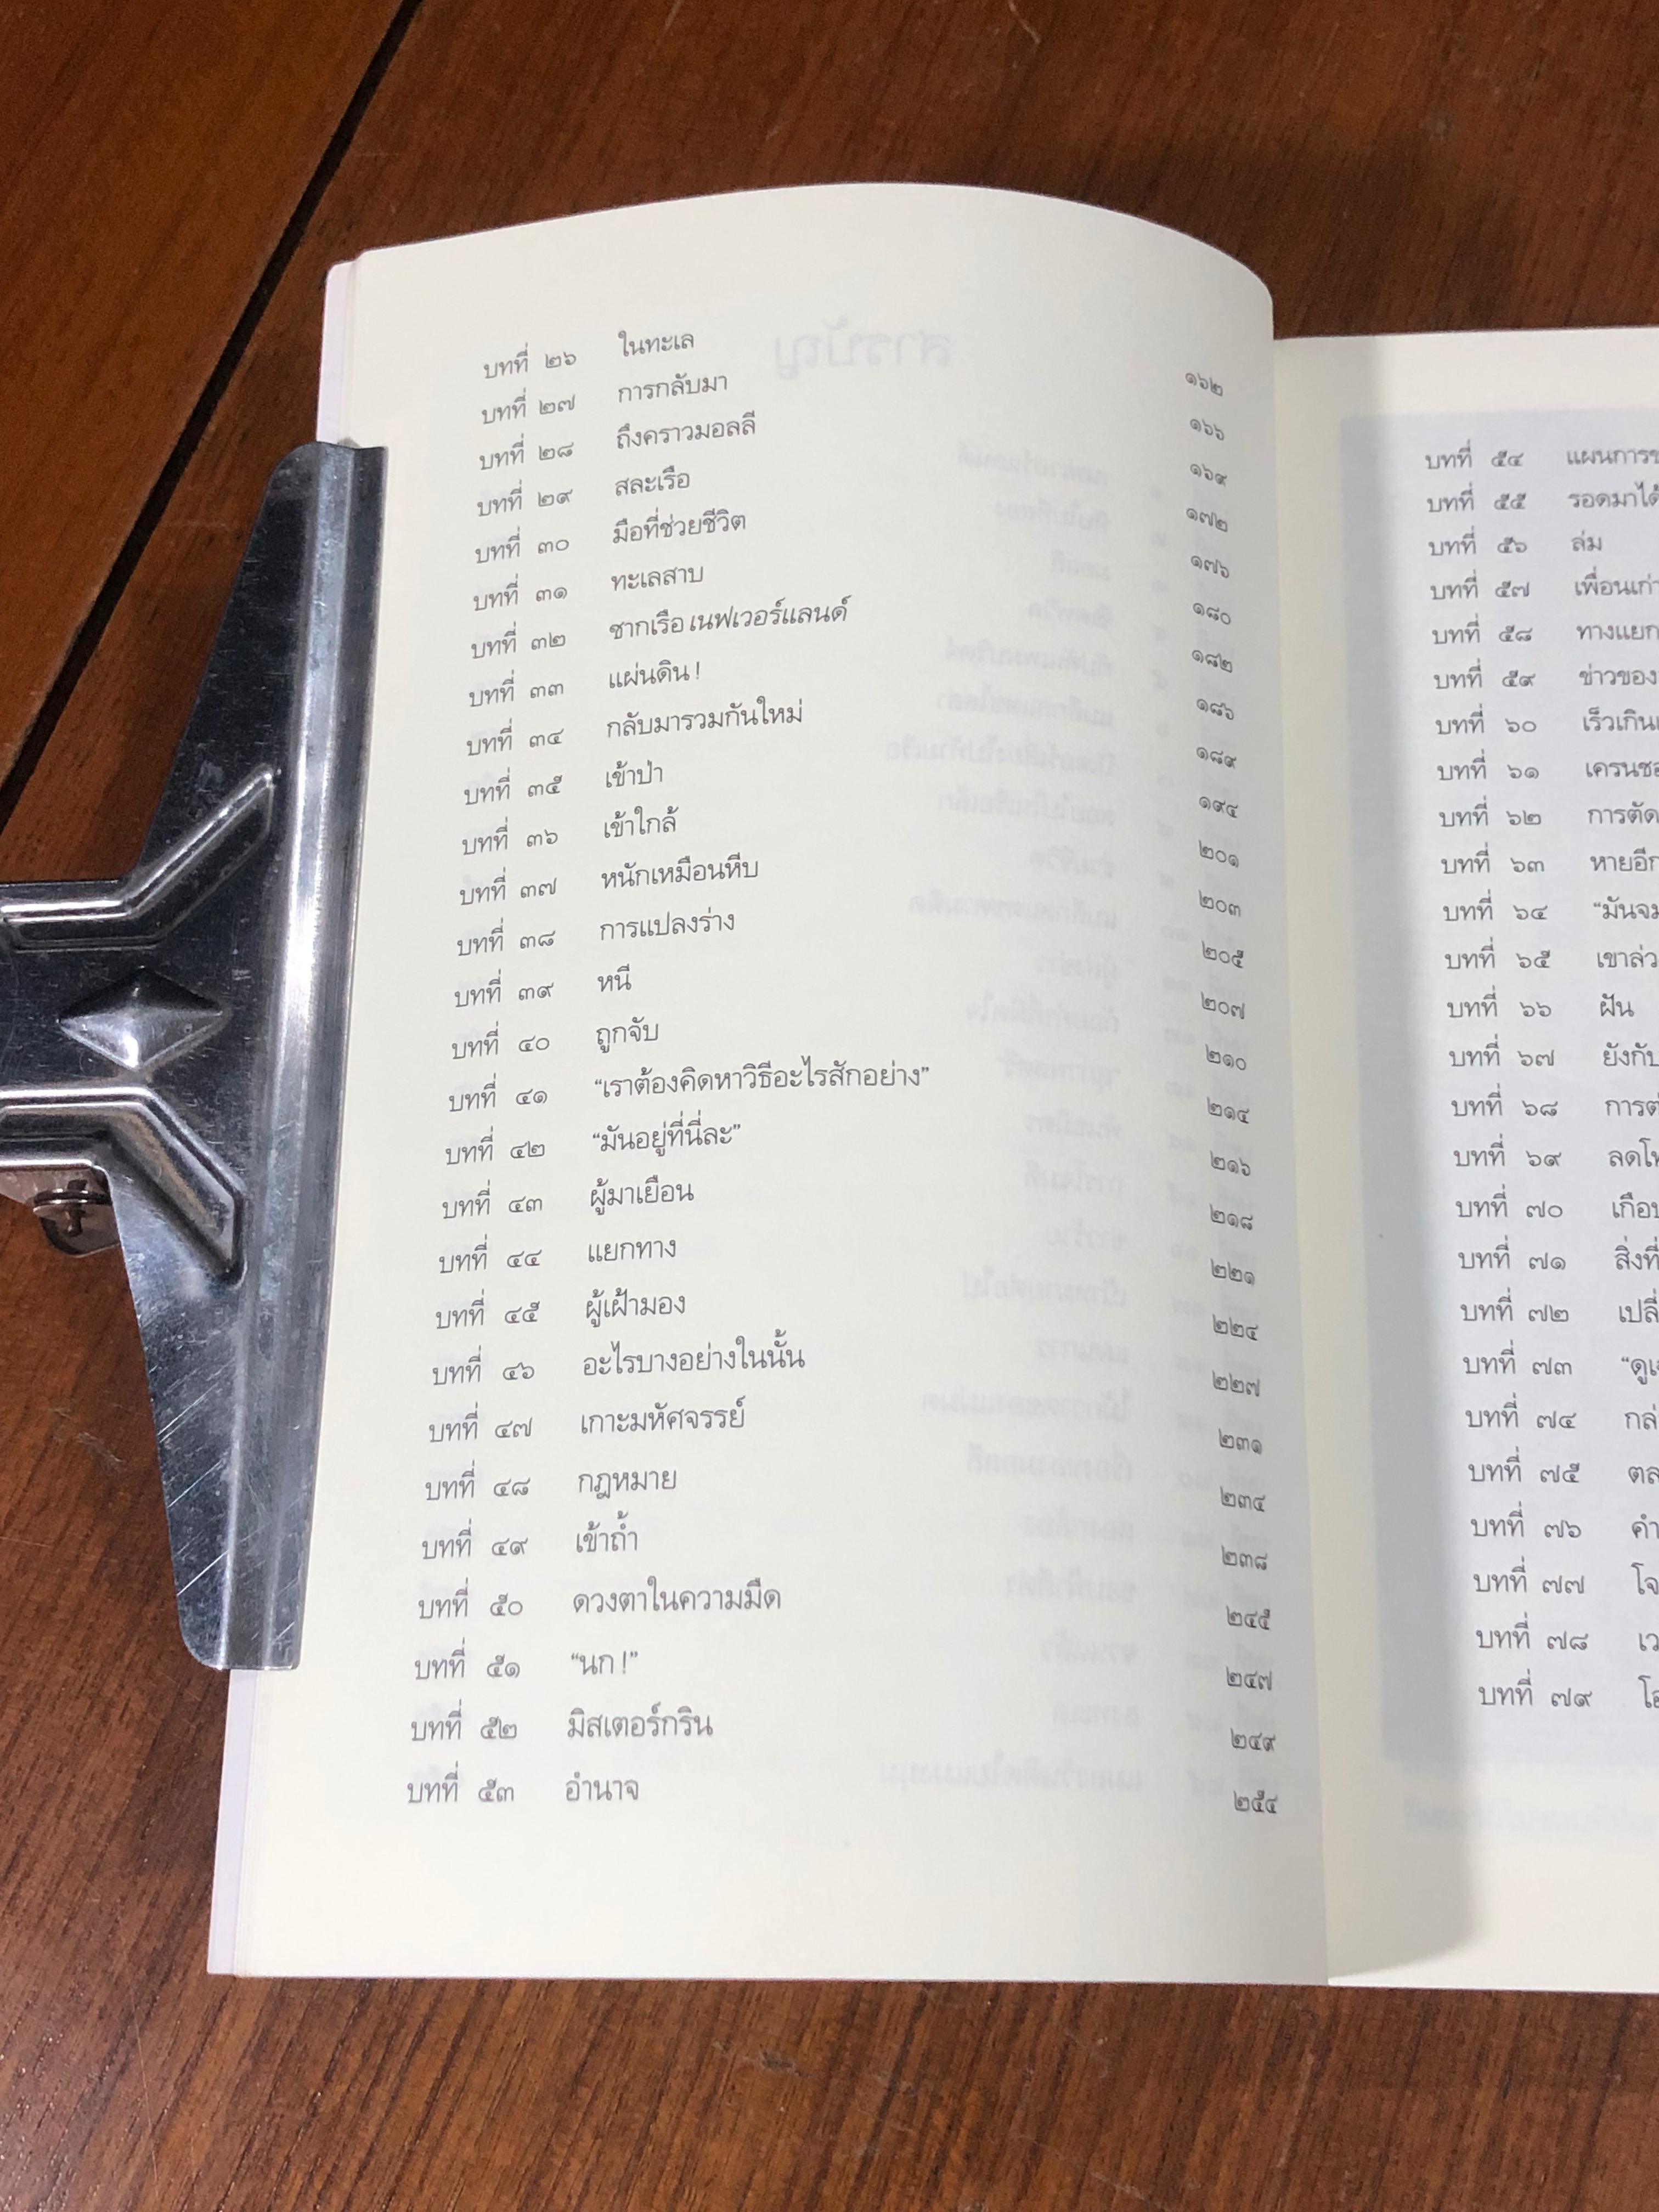 บทที่ ๒๖ ในทะเล ๑๖๒
บทที่ ๒๗ การกลับมา ๑๖๖
บทที่ ๒๘ ถึงคราวมอลลี ๑๖๙
บทที่ ๒๙ สละเรือ ๑๗๒
บทที่ ๓๐ มือที่ช่วยชีวิต ๑๗๖
บทที่ ๓๑ ทะเลสาบ ๑๘๐
บทที่ ๓๒ ซากเรือ เนฟเวอร์แลนด์ ๑๘๒
บทที่ ๓๓ แผ่นดิน ! ๑๘๖
บทที่ ๓๔ กลับมารวมกันใหม่ ๑๘๙
บทที่ ๓๕ เข้าป่า ๑๙๔
บทที่ ๓๖ เข้าใกล้ ๒๐๑
บทที่ ๓๗ หนักเหมือนหีบ ๒๐๓
บทที่ ๓๘ การแปลงร่าง ๒๐๕
บทที่ ๓๙ หนี ๒๐๗
บทที่ ๔๐ ถูกจับ ๒๑๐
บทที่ ๔๑ “เราต้องคิดหาวิธีอะไรสักอย่าง” ๒๑๔
บทที่ ๔๒ “มันอยู่ที่นี่ละ” ๒๑๖
บทที่ ๔๓ ผู้มาเยือน ๒๑๘
บทที่ ๔๔ แยกทาง ๒๒๑
บทที่ ๔๕ ผู้เฝ้ามอง ๒๒๔
บทที่ ๔๖ อะไรบางอย่างในนั้น ๒๒๗
บทที่ ๔๗ เกาะมหัศจรรย์ ๒๓๑
บทที่ ๔๘ กฎหมาย ๒๓๔
บทที่ ๔๙ เข้าถ้ำ ๒๓๘
บทที่ ๕๐ ดวงตาในความมืด ๒๔๕
บทที่ ๕๑ “นก !” ๒๔๗
บทที่ ๕๒ มิสเตอร์กริน ๒๔๙
บทที่ ๕๓ อำนาจ ๒๕๔
บทที่ ๕๔ แผนการข
บทที่ ๕๕ รอดมาได้
บทที่ ๕๖ ล่ม
บทที่ ๕๗ เพื่อนเก่า
บทที่ ๕๘ ทางแยก
บทที่ ๕๙ ข่าวของ
บทที่ ๖๐ เร็วเกิน
บทที่ ๖๑ เครนชอ
บทที่ ๖๒ การตัด
บทที่ ๖๓ หายอีก
บทที่ ๖๔ “มันจม
บทที่ ๖๕ เขาล่ว
บทที่ ๖๖ ฝัน
บทที่ ๖๗ ยังกับ
บทที่ ๖๘ การต่
บทที่ ๖๙ ลดโท
บทที่ ๗๐ เกือบ
บทที่ ๗๑ สิ่งที่
บทที่ ๗๒ เปลี่
บทที่ ๗๓ “ดูเ
บทที่ ๗๔ กล่
บทที่ ๗๕ ตล
บทที่ ๗๖ คำ
บทที่ ๗๗ โจ
บทที่ ๗๘ เว
บทที่ ๗๙ โอ